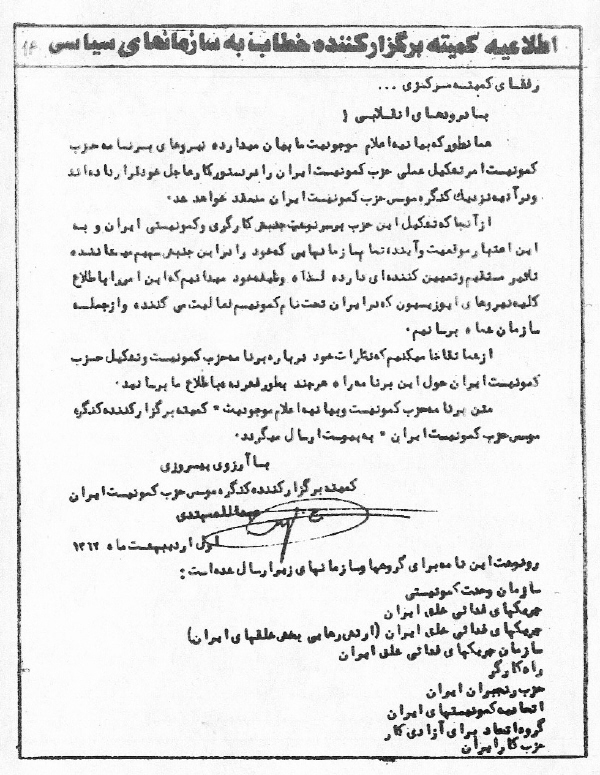 اطلاعیه کمیته برگزارکننده خطاب به سازمانهای سیاسی
رفقای کمیته مرکزی ...
با درودهای انقلابی !
همانطور که بیانیه اعلام موجودیت ما بیان میدارد نیروهای برنامه حزب
کمونیست امر تشکیل عملی حزب کمونیست ایران را در دستور کار عاجل خود قرار داده اند
و در آتیه نزدیک کنگره موسس حزب کمونیست ایران منعقد خواهد شد .
از آنجا که تشکیل این حزب بر سرنوشت جنبش کارگری و کمونیستی ایران و به
این اعتبار موقعیت و آینده تمام سازمانهایی که خود را در این جنبش سهیم میدانند
تاثیر مستقیم و تعیین کننده ای دارد لذا وظیفه خود میدانیم که این امر را باطلاع
کلیه نیروهای اپوزیسیون که در ایران تحت نام کمونیسم فعالیت می کنند و از جمله
سازمان شما برسانیم .
از شما تقاضا میکنیم که نظرات خود درباره برنامه حزب کمونیست و تشکیل حزب
کمونیست ایران حول این برنامه را هر چند بطور فشرده باطلاع ما برسانید .
متن برنامه حزب کمونیست و بیانیه اعلام موجودیت " کمیته برگزارکننده کنگره
موسس حزب کمونیست ایران " به پیوست ارسال میگردد .
با آرزوی پیروزی
کمیته برگزارکننده کنگره موسس حزب کمونیست ایران
عبدالله مهتدی
اول اردیبهشت ماه ۱۳۶۲
رونوشت این نامه برای گروهها و سازمانهای زیر ارسال شده است :
سازمان وحدت کمونیستی
چریکهای فدائی خلق ایران
چریکهای فدائی خلق ایران (ارتش رهایی بخش خلقهای ایران)
سازمان چریکهای فدائی خلق ایران
راه کارگر
حزب رنجبران ایران
اتحادیه کمونیستهای ایران
گروه اتحاد برای آزادی کار
حزب کار ایران